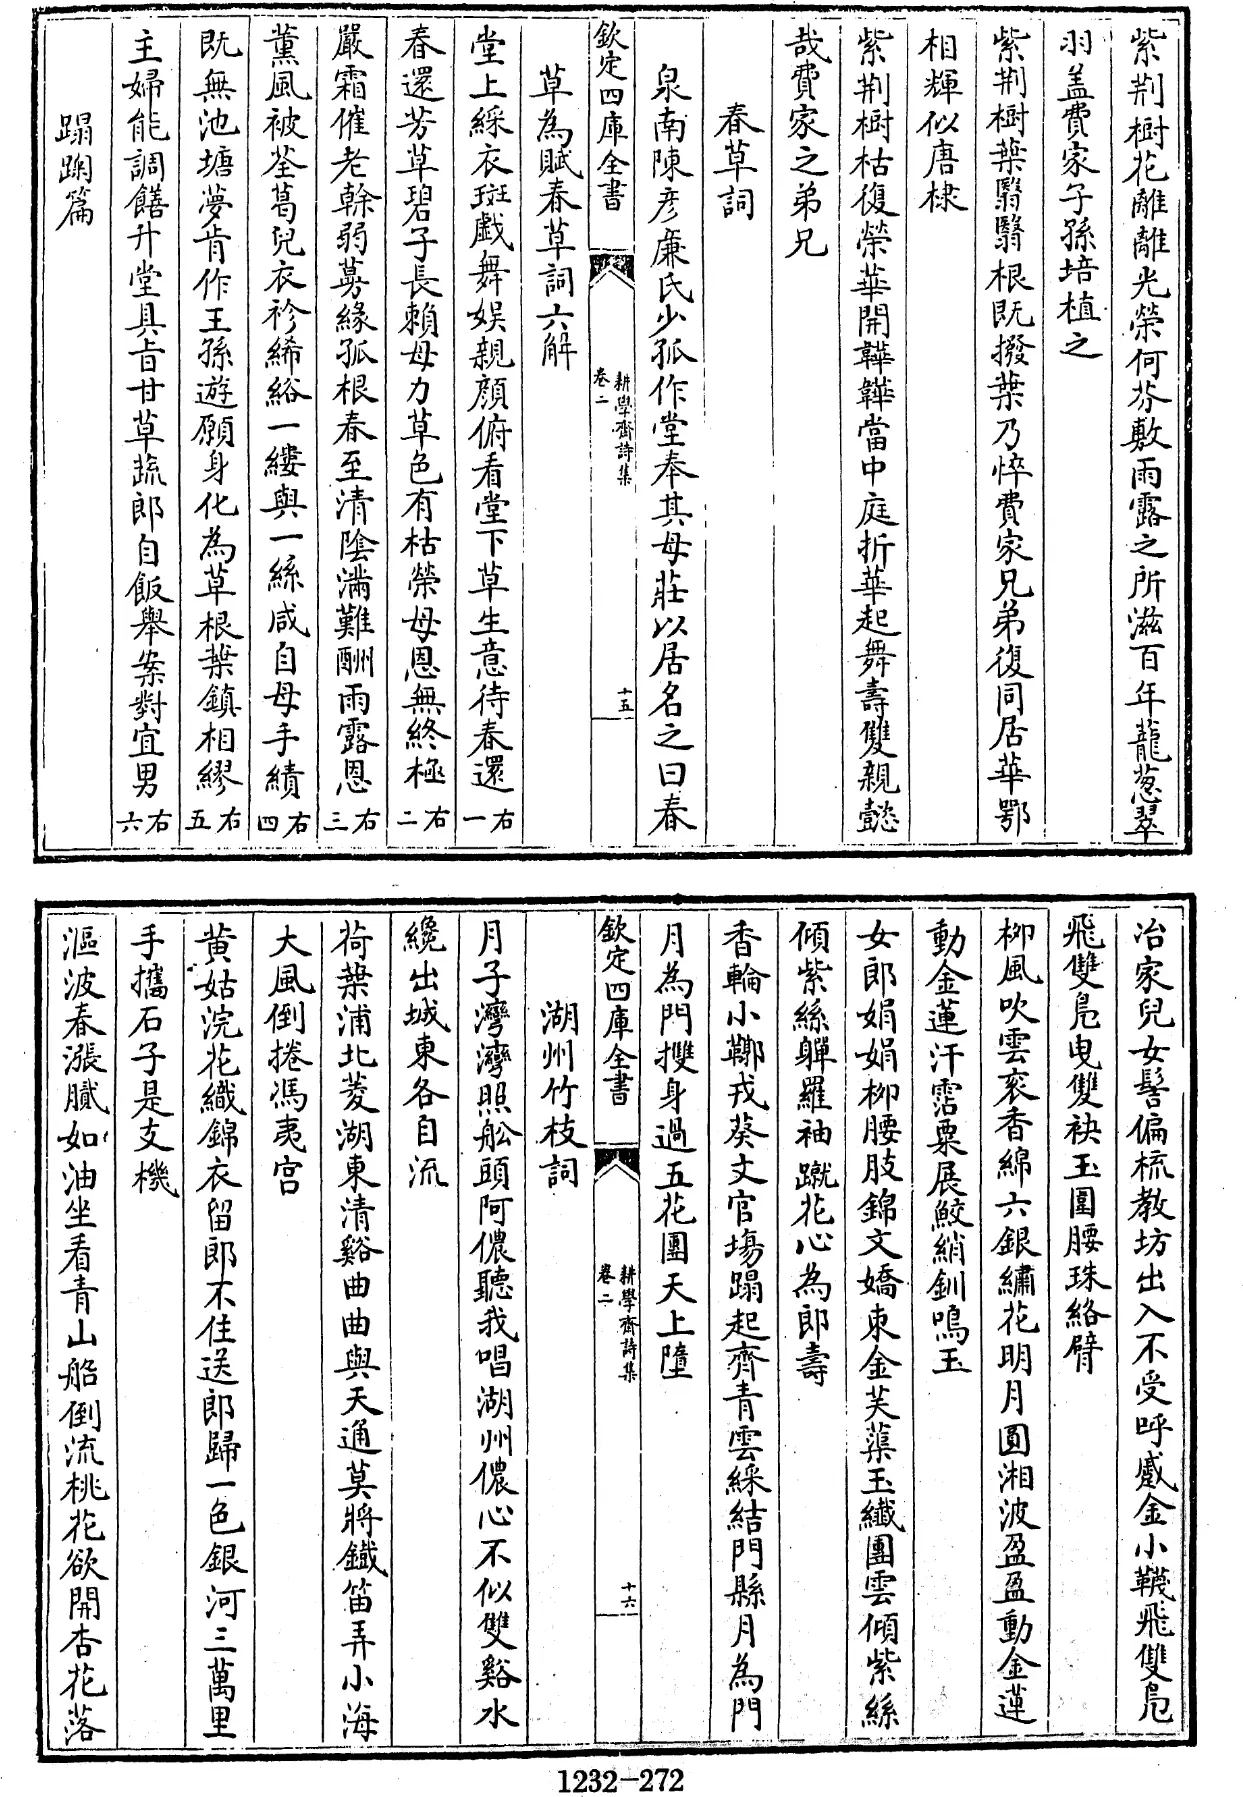 紫荆樹花離離光榮何芬敷雨露之所滋百年蘢葱翠
羽盖費家子孫培植之
紫荆樹葉翳翳根既撥葉乃悴費家兄弟復同居華鄂
相輝似唐棣
紫荆樹枯復榮華開韡韡當中庭折華起舞壽雙親懿
哉費家之弟兄
春草詞
泉南陳彦廉氏少孤作堂奉其母莊以居名之曰春
欽定四庫全書
耕學齋詩集
卷二
十五
草為賦春草詞六解
堂上綵衣斑戯舞娱親顔俯看堂下草生意待春還右一
春還芳草碧子長賴母力草色有枯榮母恩無終極右二
嚴霜催老幹弱蔓緣孤根春至清陰滿難酬雨露恩右三
薰風被荃葛兒衣袗絺綌一縷與一絲咸自母手績右四
既無池塘夢肯作王孫遊願身化為草根葉鎮相繆右五
主婦能調饍升堂具旨甘草蔬郎自飯舉案對宜男右六
蹋踘篇
冶家兒女髻偏梳教坊出入不受呼蹙金小韈飛雙鳬
飛雙鳬曳雙袂玉圍腰珠絡臂
柳風吹雲衮香綿六銀繡花明月圓湘波盈盈動金蓮
動金蓮汗霑粟展鮫綃釧鳴玉
女郎娟娟柳腰肢錦文嬌束金芙蕖玉纖團雲傾紫絲
傾紫絲軃羅袖蹴花心為郎壽
香輪小鞾戎葵丈官塲蹋起齊青雲綵結門縣月為門
月為門㩳身過五花團天上墮
欽定四庫全書
耕學齋詩集
卷二
十六
湖州竹枝詞
月子灣灣照舩頭阿儂聽我唱湖州儂心不似雙谿水
纔出城東各自流
荷葉浦北菱湖東清谿曲曲與天通莫將鐵笛弄小海
大風倒捲馮夷宫
黄姑浣花織錦衣留郎不住送郎歸一色銀河三萬里
手攜石子是支機
漚波春漲膩如油坐看青山船倒流桃花欲開杏花落
1232-272